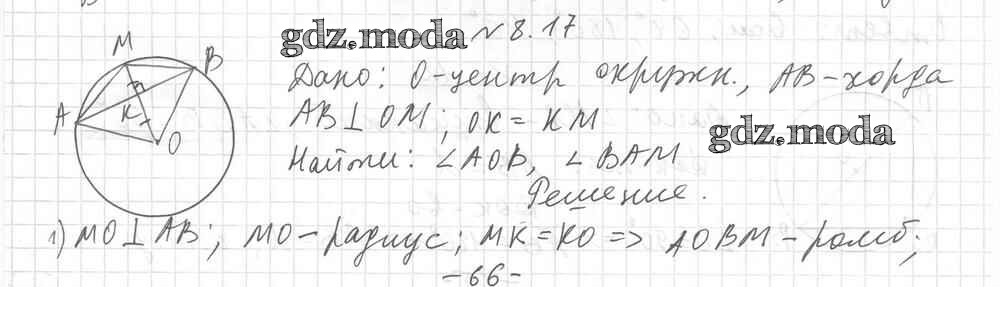 gdz.moda № 8.17
M
B
A
K
O
Дано: O-центр окружн., AB-хорда
AB⊥OM; OK=KM
gdz.moda
Найти: ∠AOB, ∠BAM
Решение.
1) MO⊥AB; MO-радиус; MK=KO => AOBM-ромб;
-66-